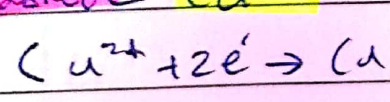 Cu²⁺ + 2e⁻ → Cu